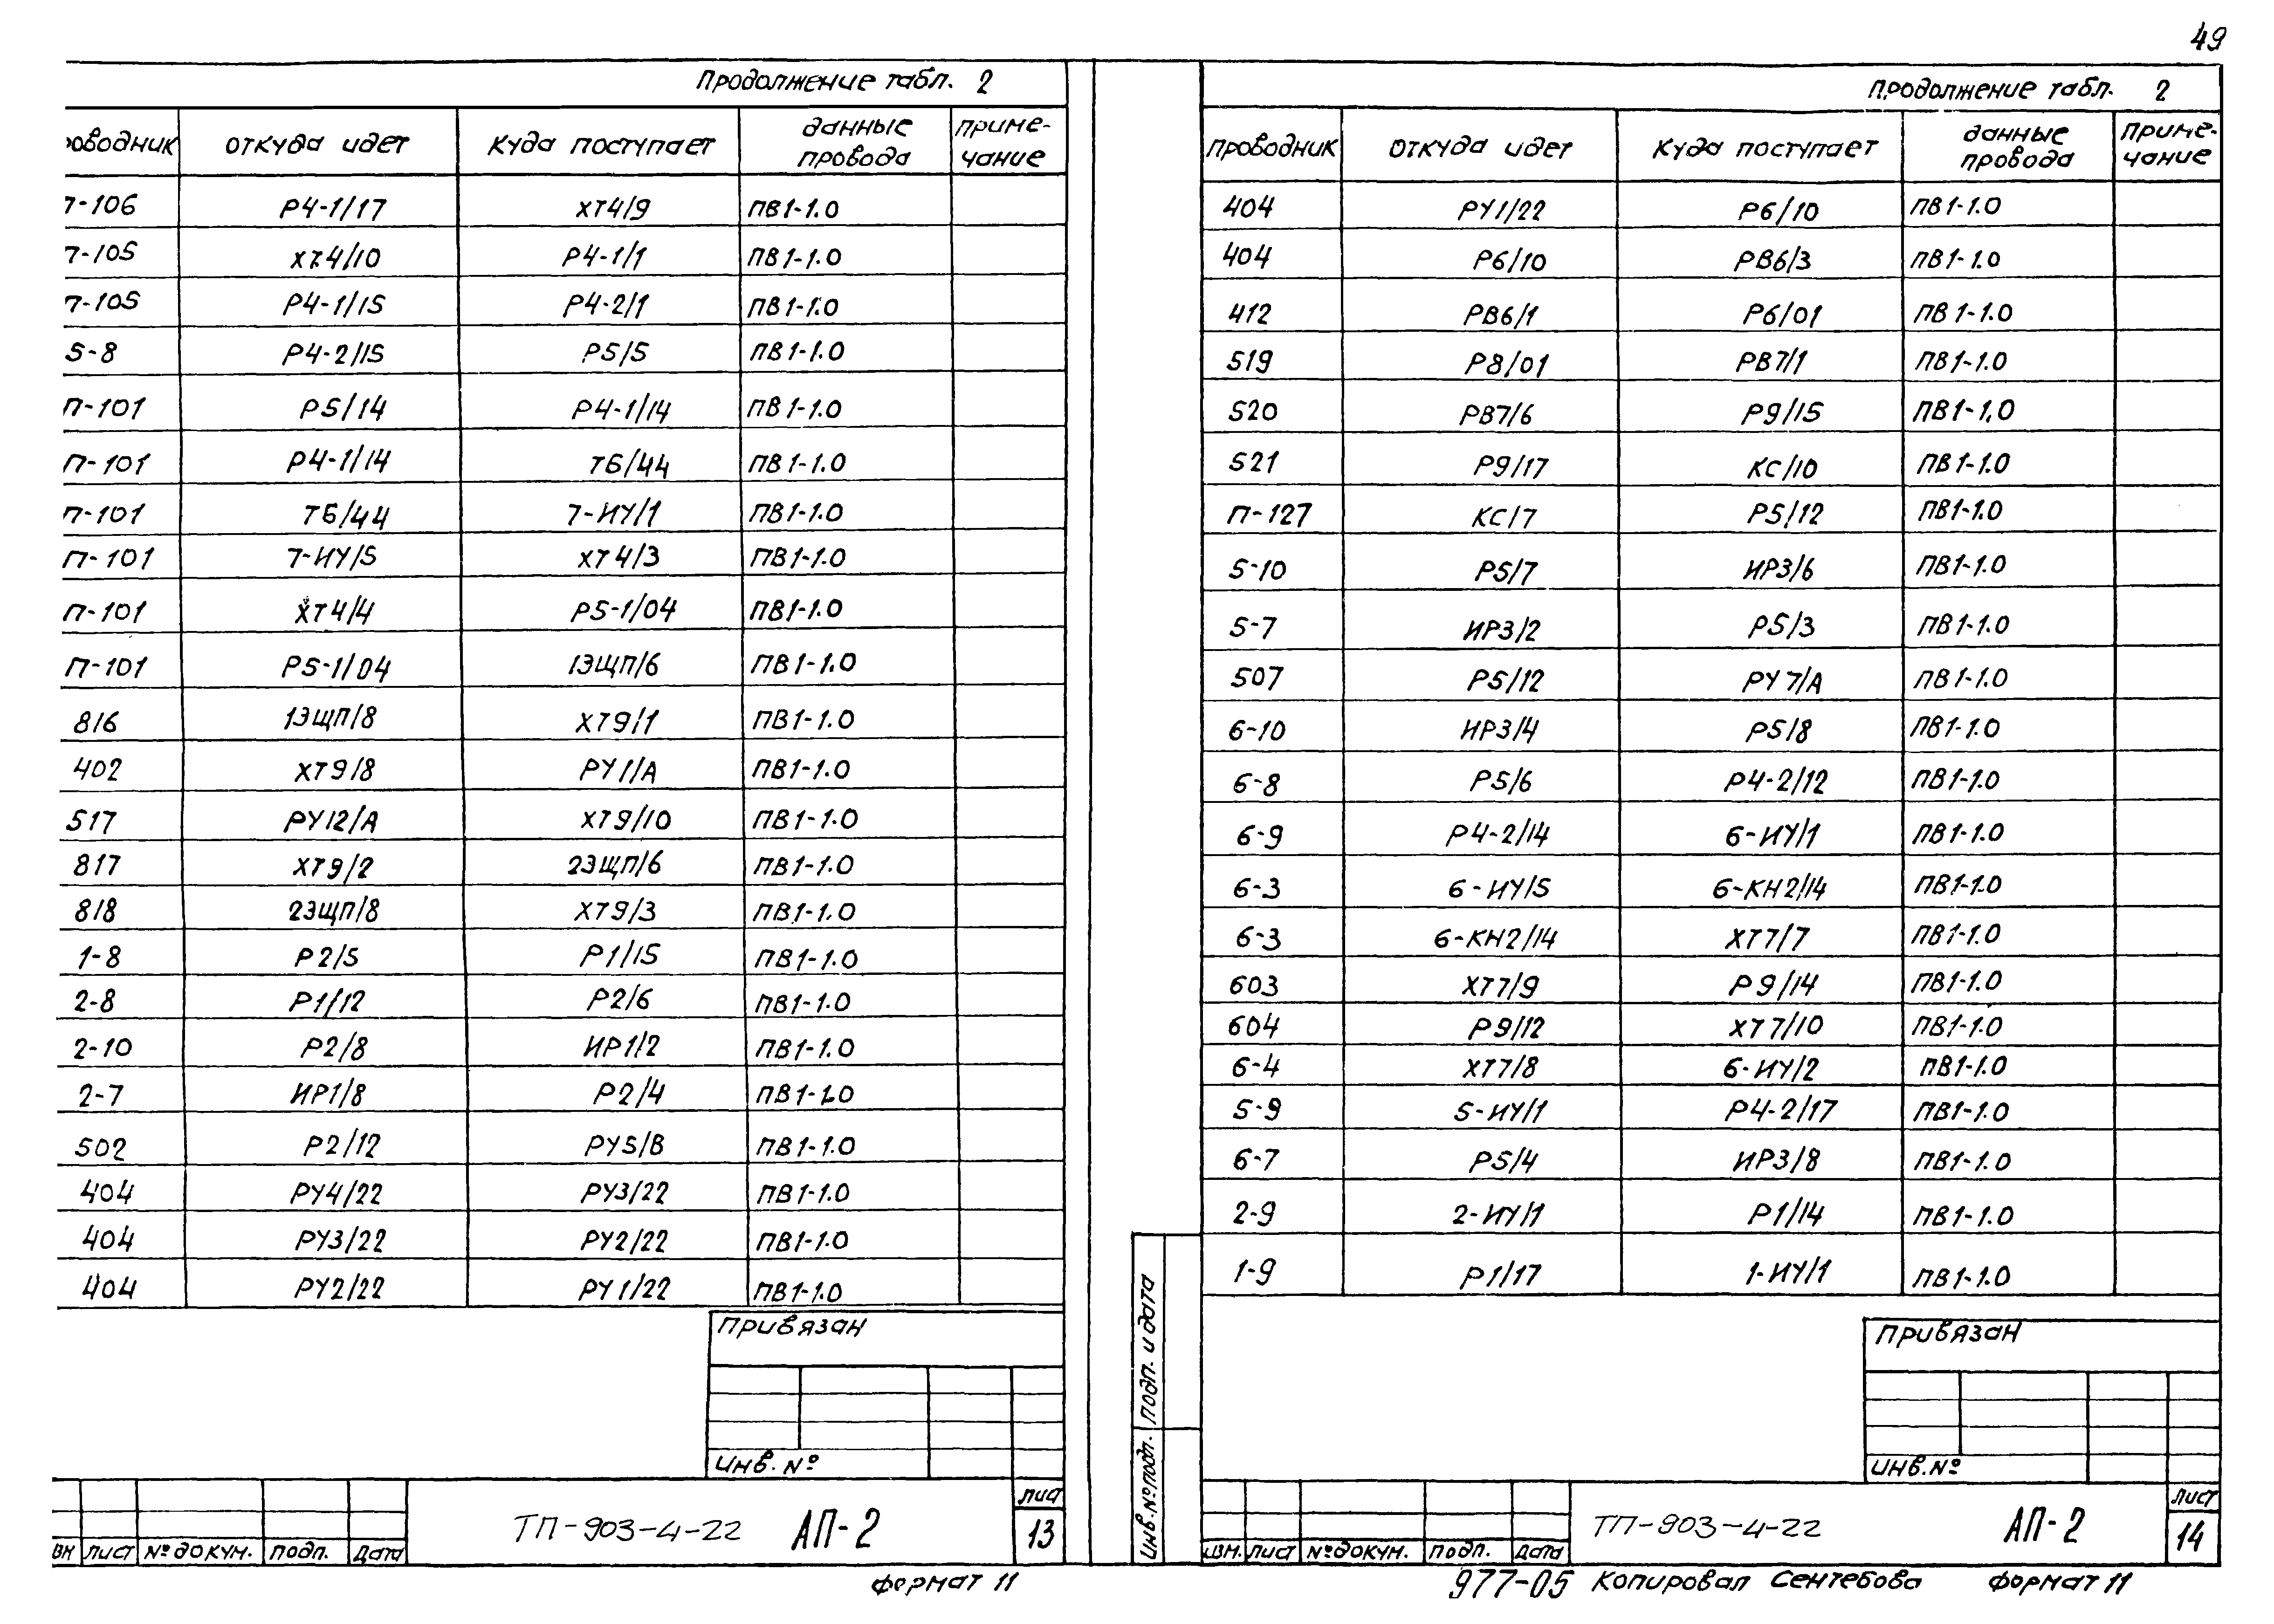 49
Продолжение табл. 2
роводник откуда идет куда поступает данные провода приме-чание
7-106 Р4-1/17 ХТ4/9 ПВ1-1.0
7-105 ХТ4/10 Р4-1/1 ПВ1-1.0
7-105 Р4-1/15 Р4-2/1 ПВ1-1.0
5-8 Р4-2/15 Р5/5 ПВ1-1.0
П-101 Р5/14 Р4-1/14 ПВ1-1.0
П-101 Р4-1/14 ТБ/44 ПВ1-1.0
П-101 ТБ/44 7-ИУ/1 ПВ1-1.0
П-101 7-ИУ/5 ХТ4/3 ПВ1-1.0
П-101 ХТ4/4 Р5-1/04 ПВ1-1.0
П-101 Р5-1/04 1ЭЩП/6 ПВ1-1.0
816 1ЭЩП/8 ХТ9/1 ПВ1-1.0
402 ХТ9/8 РУ1/А ПВ1-1.0
517 РУ12/А ХТ9/10 ПВ1-1.0
817 ХТ9/2 2ЭЩП/6 ПВ1-1.0
818 2ЭЩП/8 ХТ9/3 ПВ1-1.0
1-8 Р2/5 Р1/15 ПВ1-1.0
2-8 Р1/12 Р2/6 ПВ1-1.0
2-10 Р2/8 ИР1/2 ПВ1-1.0
2-7 ИР1/8 Р2/4 ПВ1-1.0
502 Р2/12 РУ5/В ПВ1-1.0
404 РУ4/22 РУ3/22 ПВ1-1.0
404 РУ3/22 РУ2/22 ПВ1-1.0
404 РУ2/22 РУ1/22 ПВ1-1.0
Привязан
Инв. №
ТП-903-4-22 АП-2
лист
13
вн лист № докум. подп. дата
формат 11
Продолжение табл. 2
проводник откуда идет куда поступает данные провода приме-чание
404 РУ1/22 Р6/10 ПВ1-1.0
404 Р6/10 РВ6/3 ПВ1-1.0
412 РВ6/1 Р6/01 ПВ1-1.0
519 Р8/01 РВ7/1 ПВ1-1.0
520 РВ7/6 Р9/15 ПВ1-1,0
521 Р9/17 КС/10 ПВ1-1.0
П-127 КС/7 Р5/12 ПВ1-1.0
5-10 Р5/7 ИР3/6 ПВ1-1.0
5-7 ИР3/2 Р5/3 ПВ1-1.0
507 Р5/12 РУ7/А ПВ1-1.0
6-10 ИР3/4 Р5/8 ПВ1-1.0
6-8 Р5/6 Р4-2/12 ПВ1-1.0
6-9 Р4-2/14 6-ИУ/1 ПВ1-1.0
6-3 6-ИУ/5 6-КН2/14 ПВ1-1.0
6-3 6-КН2/14 ХТ7/7 ПВ1-1.0
603 ХТ7/9 Р9/14 ПВ1-1.0
604 Р9/12 ХТ7/10 ПВ1-1.0
6-4 ХТ7/8 6-ИУ/2 ПВ1-1.0
5-9 5-ИУ/1 Р4-2/17 ПВ1-1.0
6-7 Р5/4 ИР3/8 ПВ1-1.0
2-9 2-ИУ/1 Р1/14 ПВ1-1.0
1-9 Р1/17 1-ИУ/1 ПВ1-1.0
Инв. № подп. подп. и дата
Привязан
Инв. №
ТП-903-4-22 АП-2
лист
14
изм. лист № докум. подп. дата
977-05 Копировал Сентебова формат 11